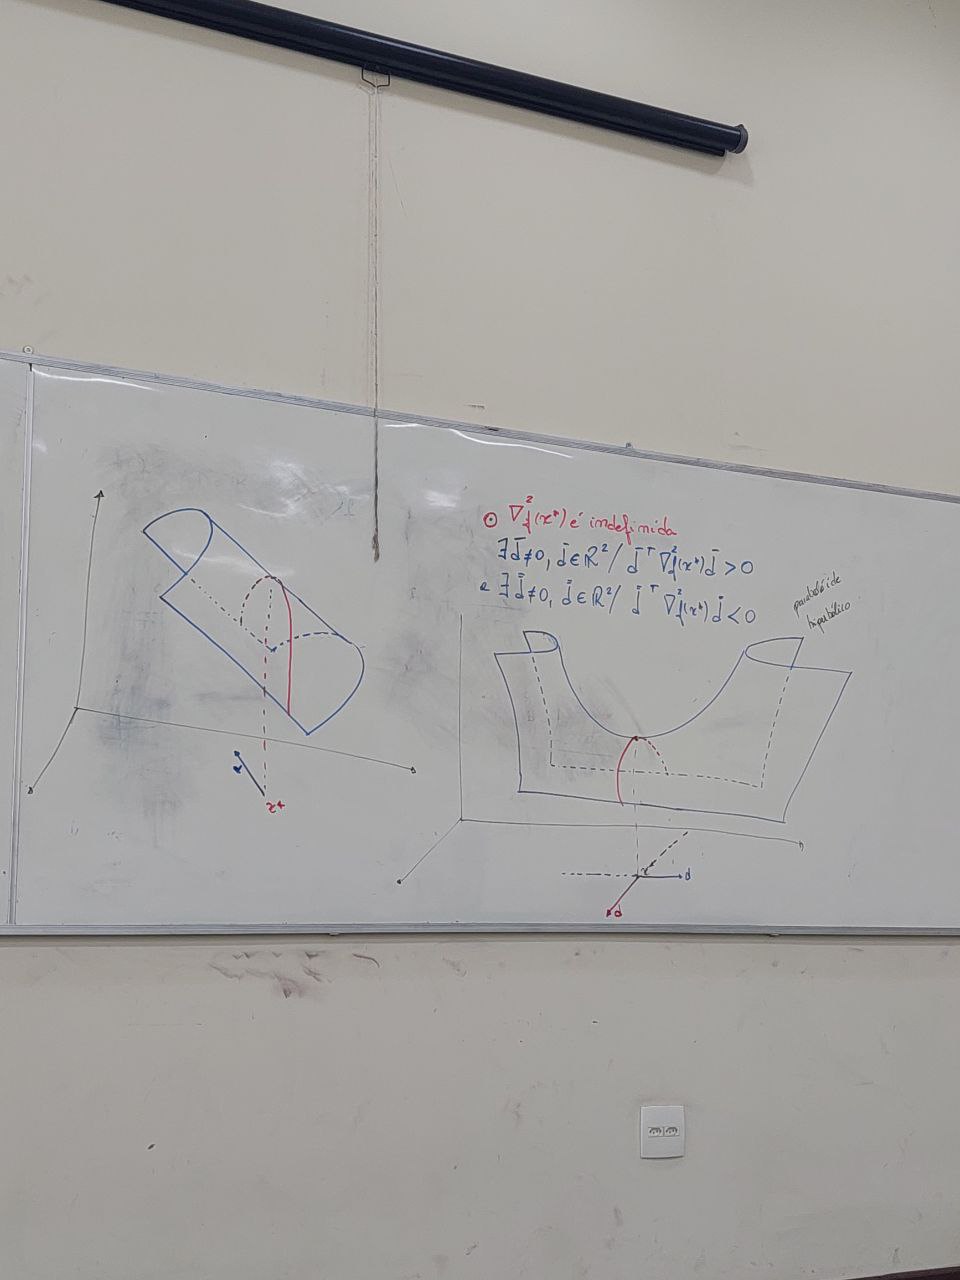 ⊙ ∇²f(x*) é indefinida
∃ d̄ ≠ 0, d̄ ∈ ℝ² / d̄ᵀ ∇²f(x*) d̄ > 0
e ∃ d̿ ≠ 0, d̿ ∈ ℝ² / d̿ᵀ ∇²f(x*) d̿ < 0
parabolóide
hiperbólico
x*
x*
d
d